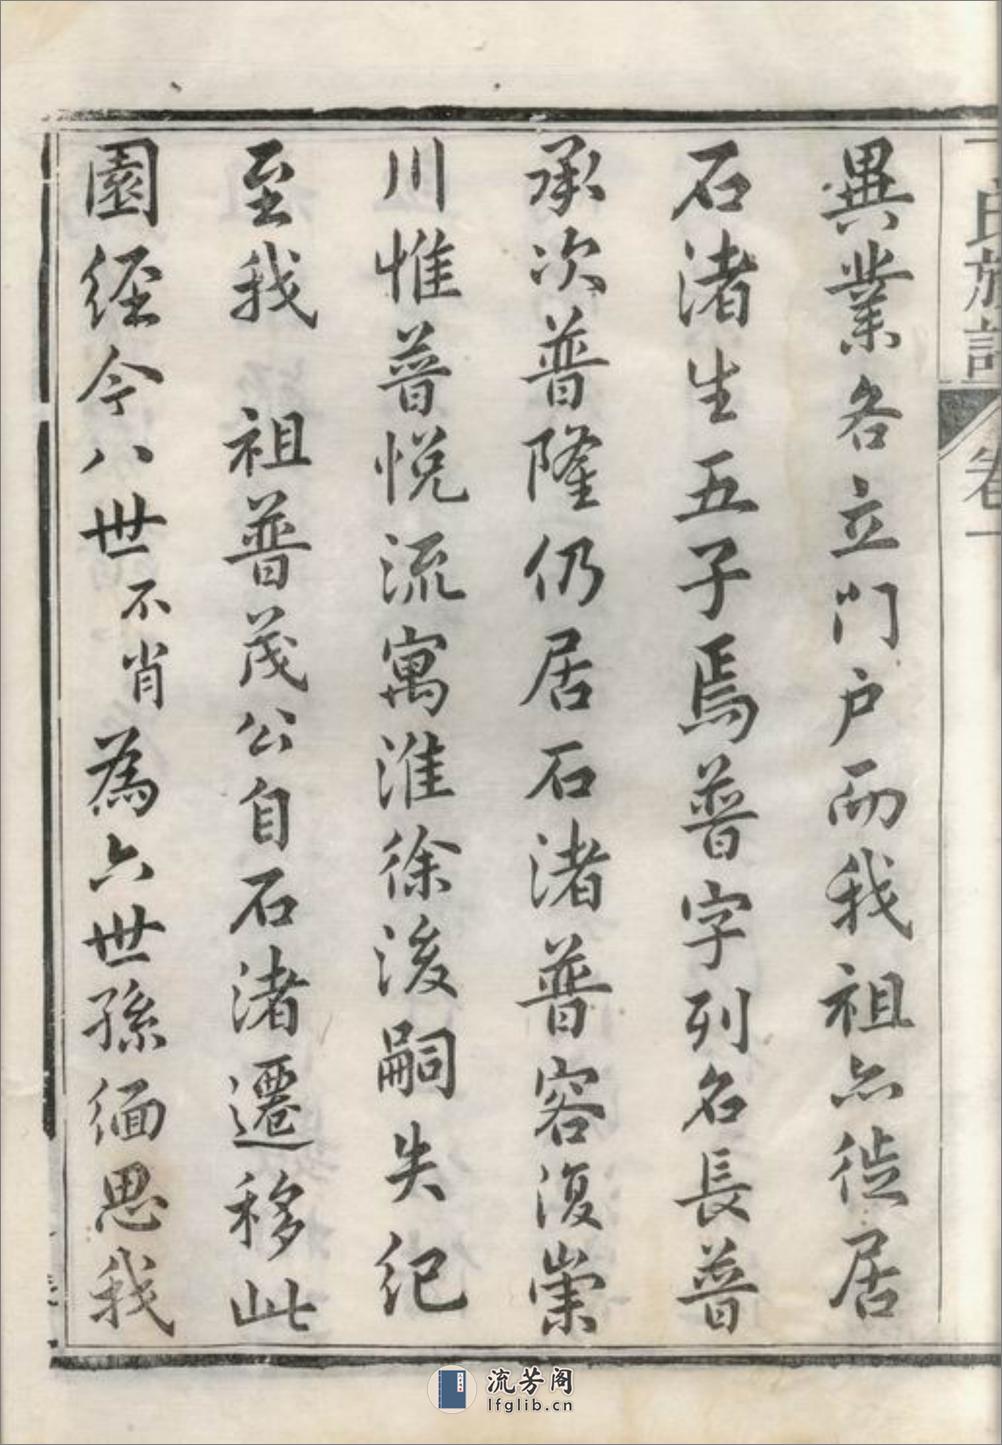 氏族譜
卷一
異業各立門户而我祖亦徙居
石渚生五子焉普字列名長普
承次普隆仍居石渚普容復業
川惟普悦流寓淮徐後嗣失紀
至我 祖普茂公自石渚遷移此
園經今八世不肖為六世孫緬思我
流芳阁
lfglib.cn